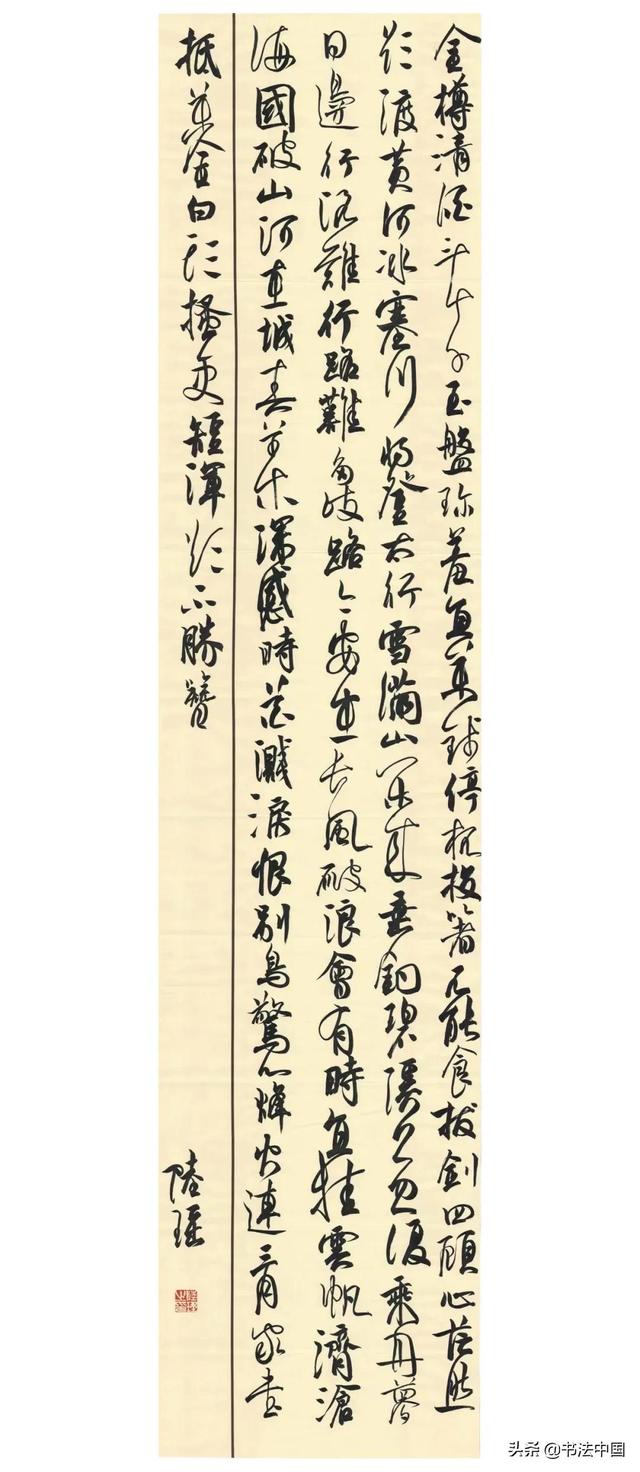 金樽清酒斗十千玉盤珍羞直萬錢停杯投箸不能食拔劍四顧心茫然
欲渡黄河冰塞川將登太行雪滿山閒來垂釣碧溪上忽復乘舟夢
日邊行路難行路難多歧路今安在長風破浪會有時直挂雲帆濟滄
海國破山河在城春草木深感時花濺淚恨別鳥驚心烽火連三月家書
抵萬金白頭搔更短渾欲不勝簪
陸瑶
头条 @书法中国